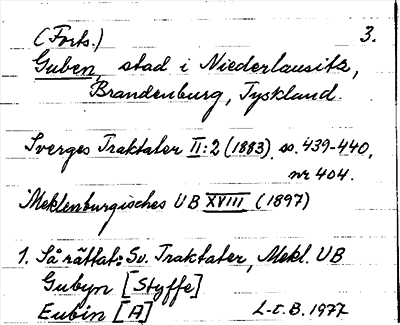 (Forts.) 3.
Guben, stad i Niederlausitz,
Brandenburg, Tyskland.
Sverges Traktater II:2 (1883), ss. 439-440,
nr 404.
Meklenburgisches UB XVIII (1897)
1. Så rättat: Sv. Traktater, Mekl. UB
Gubyn [Styffe]
Eubin [A] L-E. B. 1977